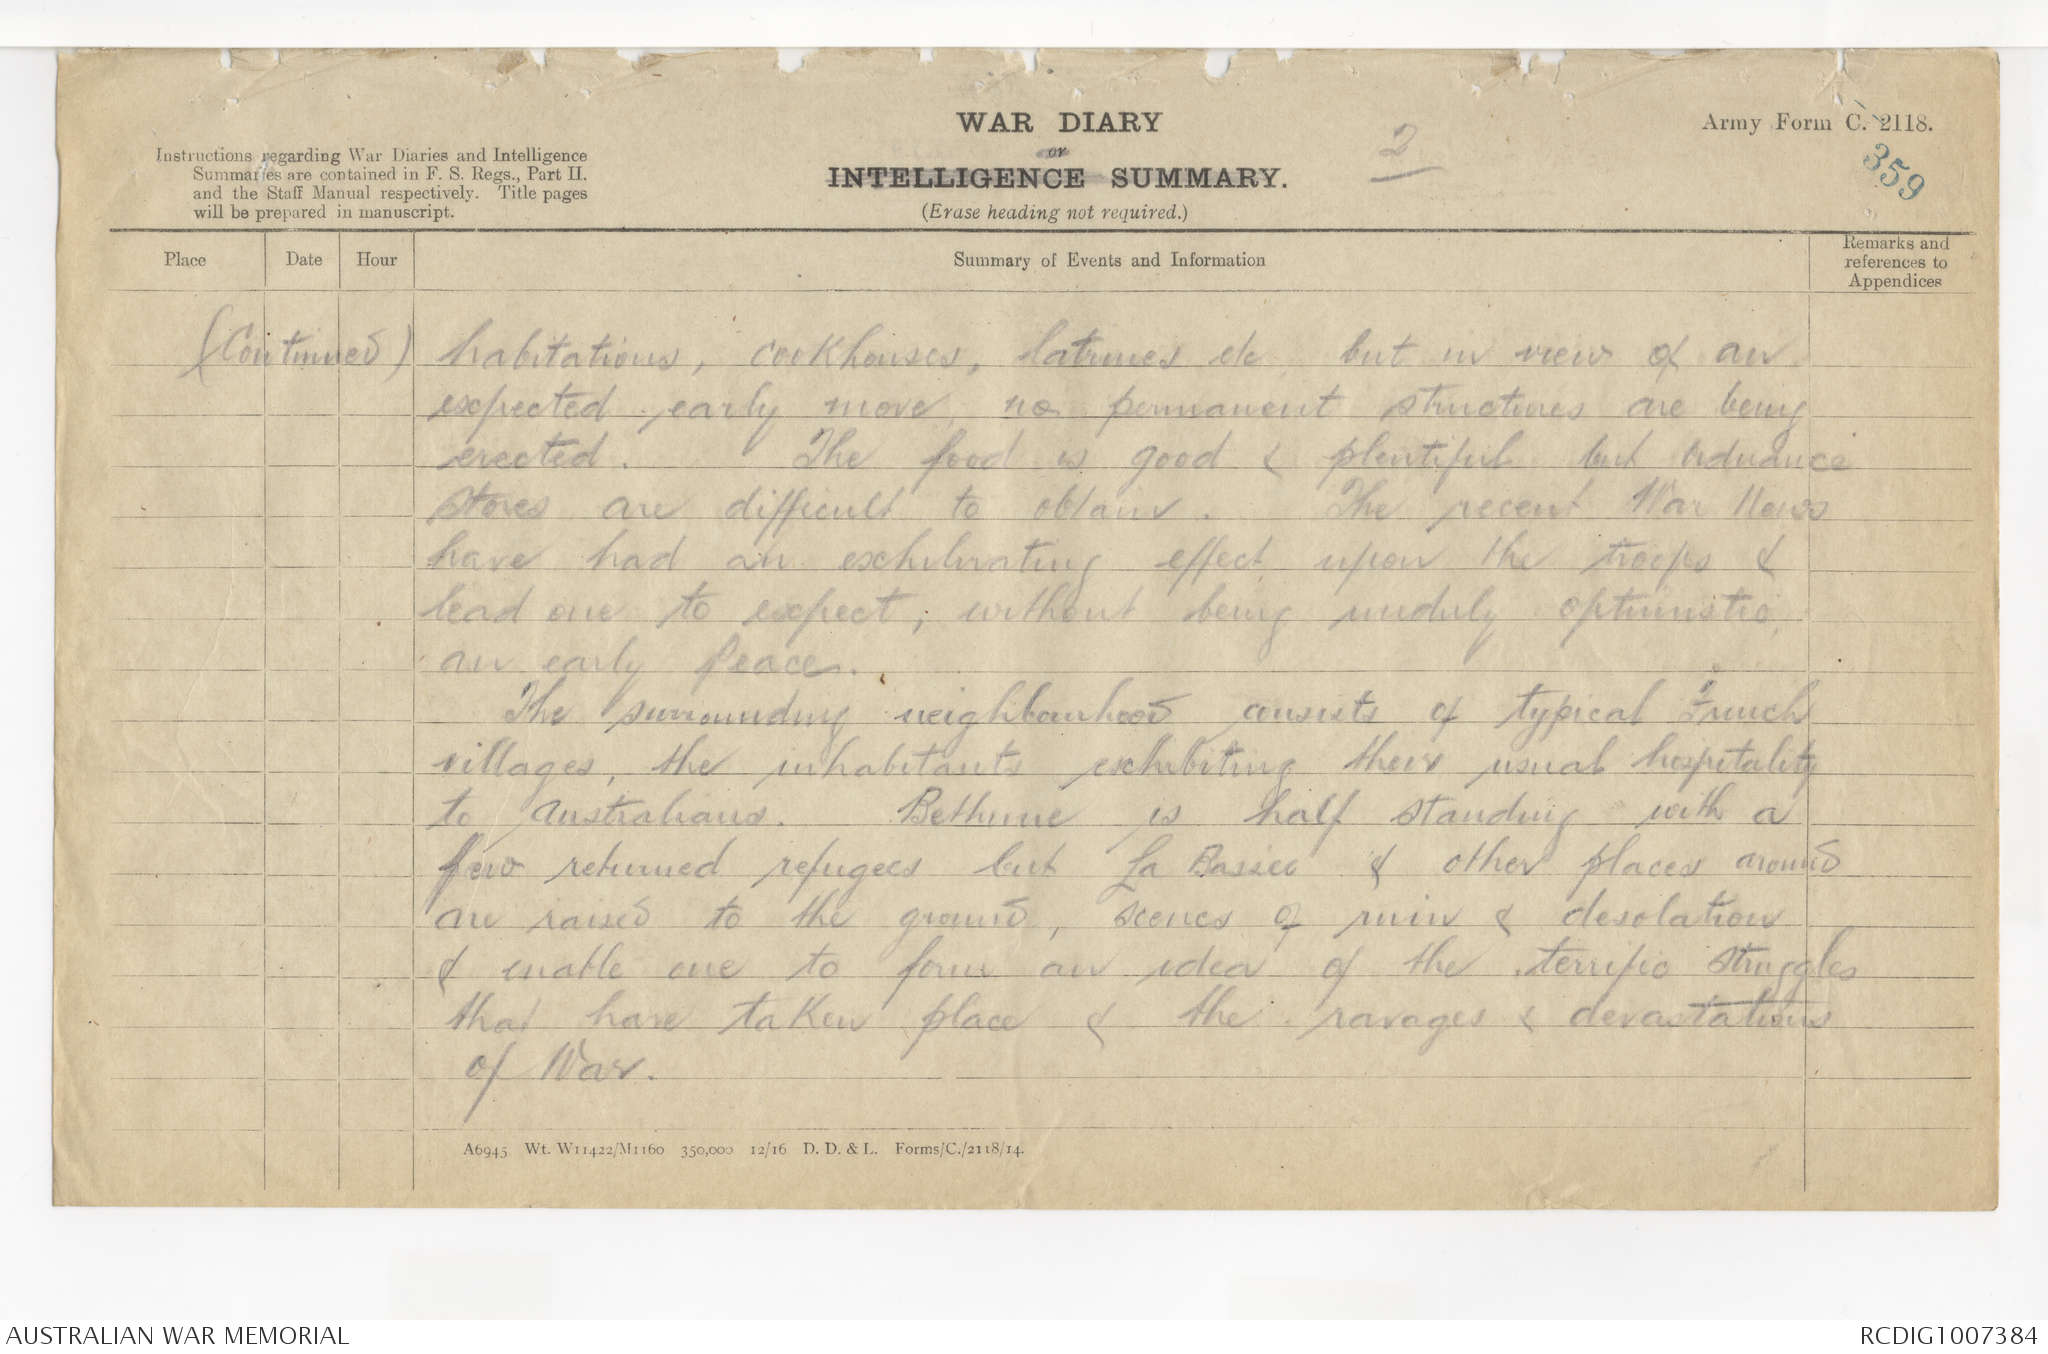 WAR DIARY
or
INTELLIGENCE SUMMARY.
(Erase heading not required.)
2
Army Form C. 2118.
359
Instructions regarding War Diaries and Intelligence
Summaries are contained in F. S. Regs., Part II.
and the Staff Manual respectively. Title pages
will be prepared in manuscript.
Place Date Hour Summary of Events and Information Remarks and
references to
Appendices
(Continued) habitations, cookhouses, latrines etc but in view of an
expected early move no permanent structures are being
erected. The food is good & plentiful but ordnance
stores are difficult to obtain. The recent War News
have had an exhilirating effect upon the troops &
lead one to expect, without being unduly optimistic,
an early Peace.
The surrounding neighbourhood consists of typical French
villages, the inhabitants exhibiting their usual hospitality
to Australians. Bethune is half standing with a
few returned refugees but La Bassee & other places around
are raised to the ground, scenes of ruin & desolation
& enable one to form an idea of the terrific struggles
that have taken place & the ravages & devastations
of War.
A6945 Wt. W11422/M1160 350,000 12/16 D. D. & L. Forms/C./2118/14.
AUSTRALIAN WAR MEMORIAL
RCDIG1007384